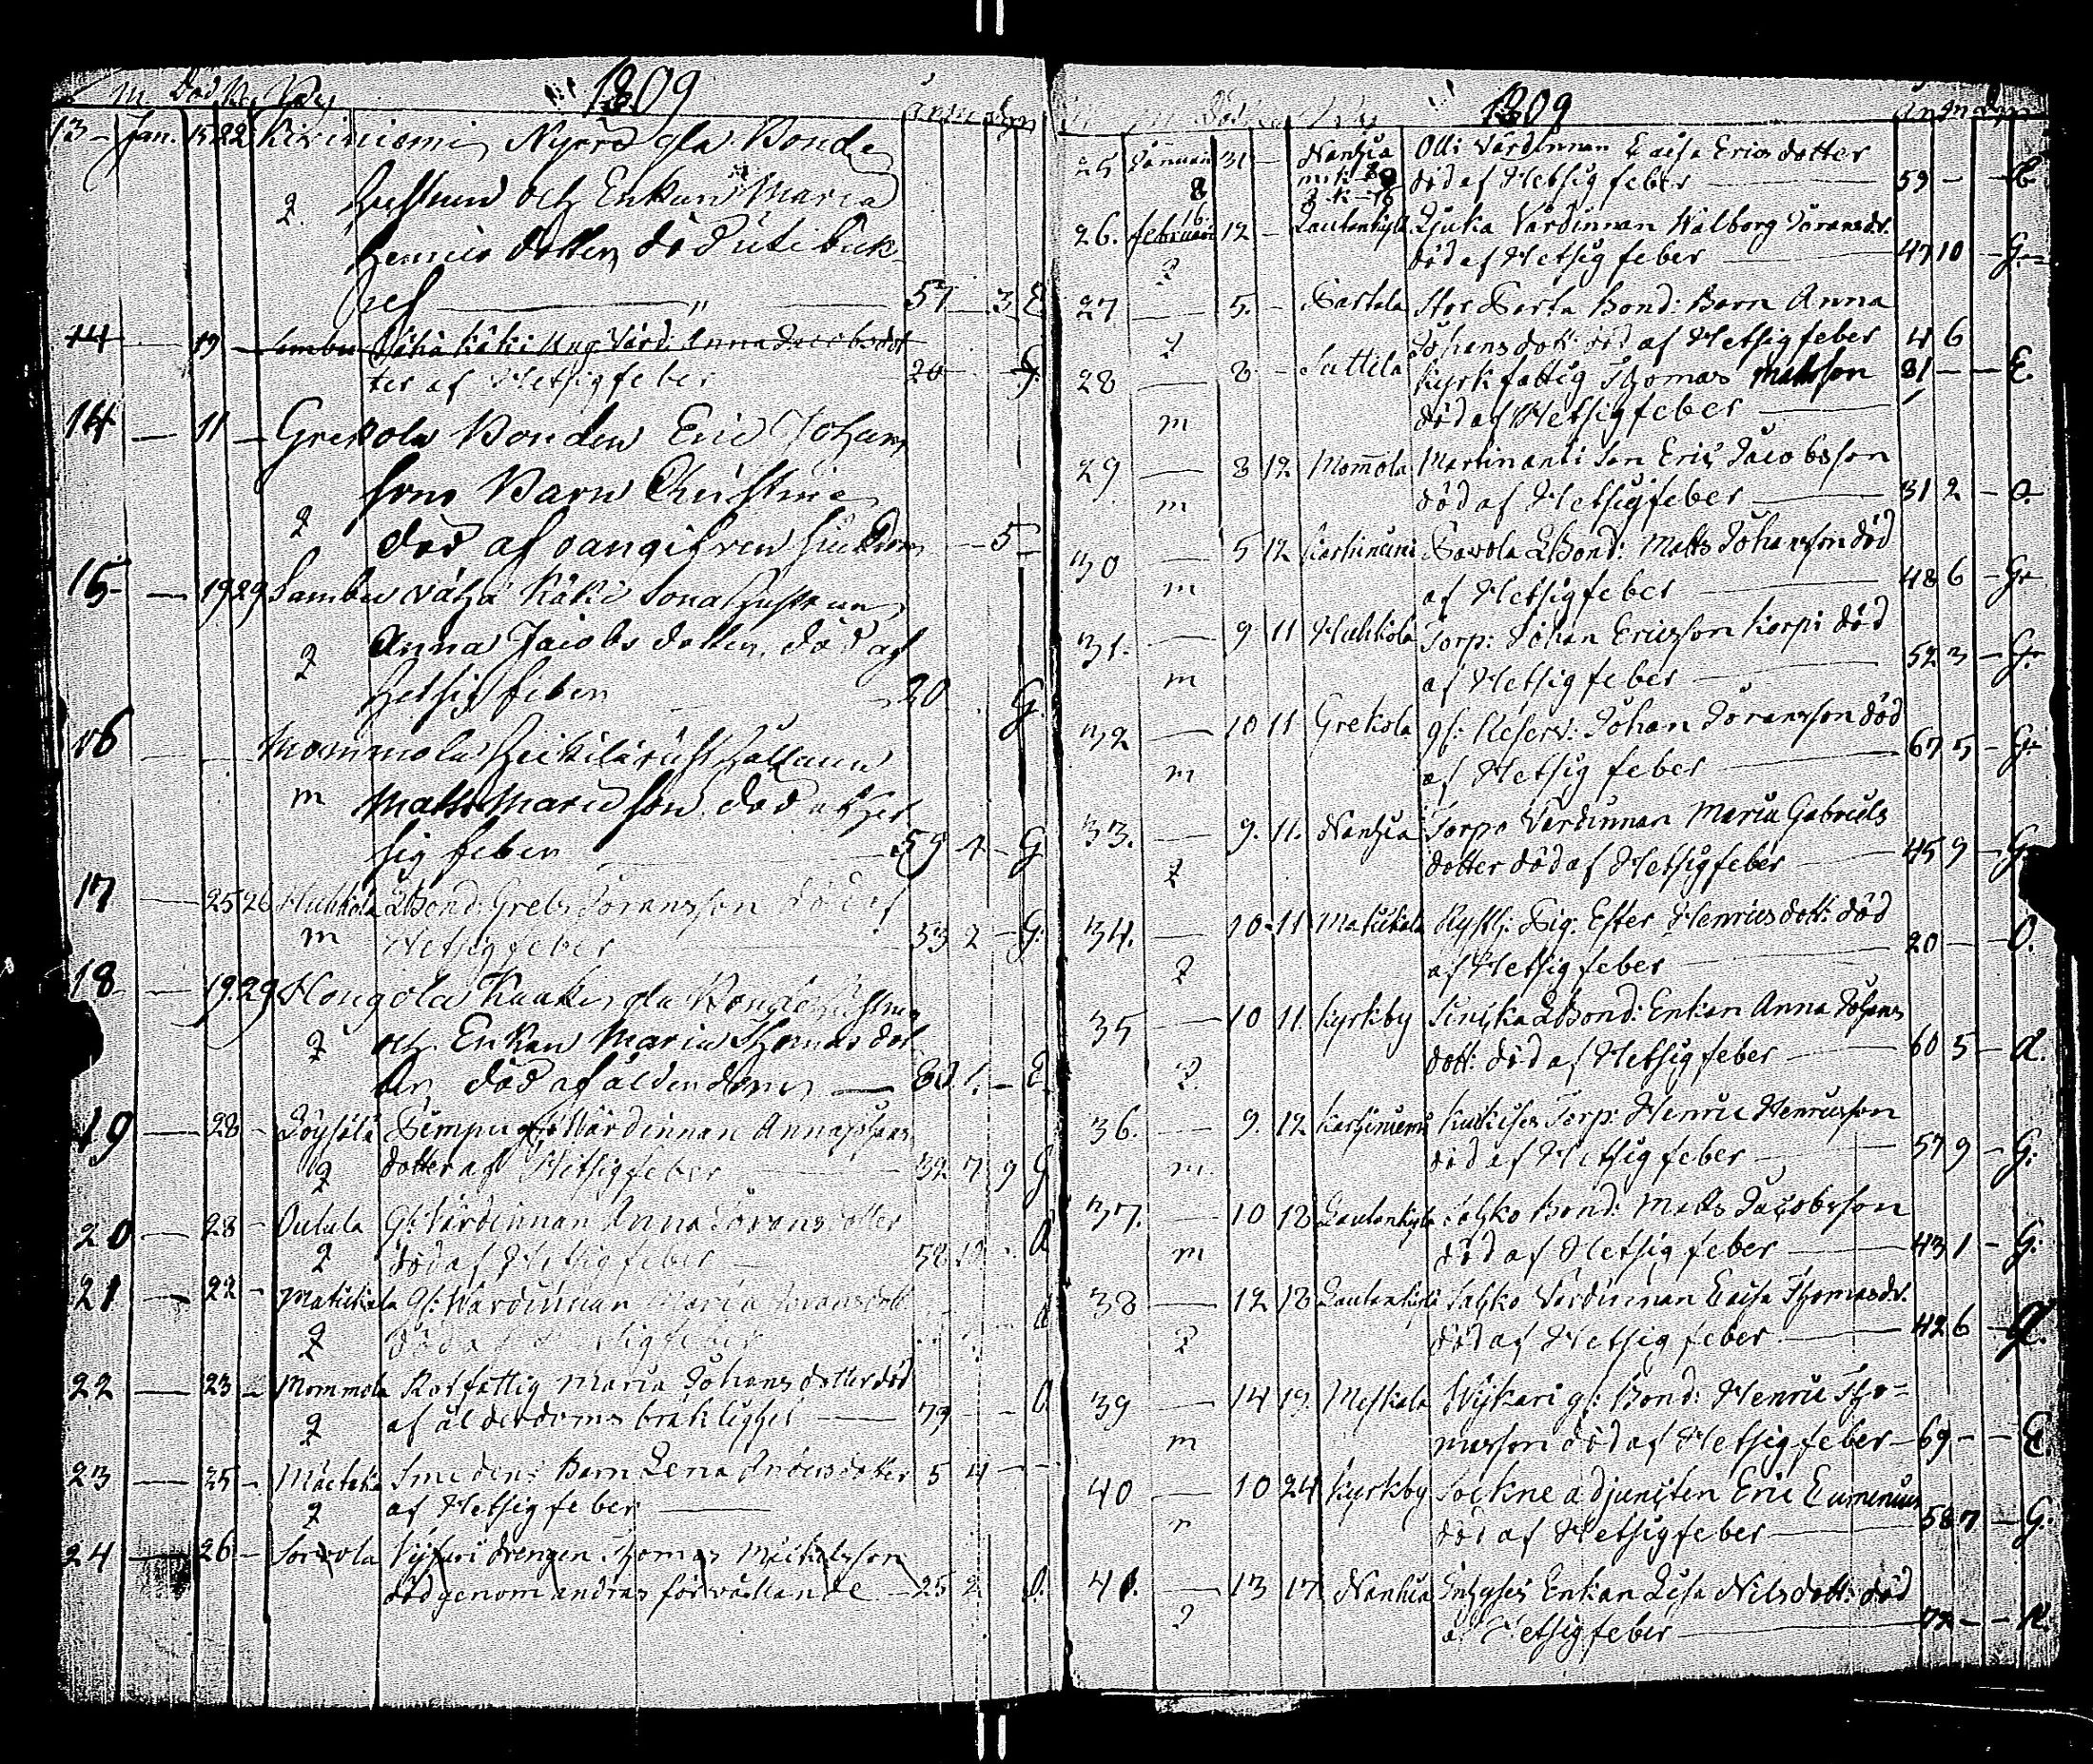 1809
13 - Jan. 15 22 Kiviniemi Nyyrd gla Bonde
Hustrun och Enkan Maria
Henrics dotter, död uti bick
57 - 3 E.
14 19 Sambu Wähä Käki Ung Värd. Anna Jacobsdot
ter af Hetsigfeber 20 G.
14 - 11 - Grekola Bonden Eric Johans
sons Barn Christina
död af oangifven siukdom - 5 -
15 - 19 29 Sambu Wähä Käki Sonahustrun
Anna Jacobs dotter, död af
Hetsig feber 20 G.
16 Mommola Heikilä rusthållaren
m Matts Mattsson död af Het
sig feber 59 4 - G
17 - 25 26 Huhkola Bond: Grels Göransson död af
m Hetsigfeber 53 2 - G.
18 - 19 29 Hongola Kaukis gla Bonde Hustrun
och Enkan Maria Thomasdot
ter död af ålderdom - 80 1. - E
19 - 28 - Löysälä Simpu Wärdinnan Anna Johans
dotter af Hetsigfeber 32 7 9 G
20 - 28 - Outula Gl: Wärdinnan Anna Göransdotter
död af Hetsigfeber 58 d
21 - 22 - Matikkala Gl: Wärdinnan Maria Göransdott
död af Hetsigfeber d
22 - 23 - Mommola Rotfattig Maria Johansdotter död
af ålderdoms bräklighet - 79 - - O
23 - 25 - Smedens Barn Lena Andersdotter 5 4 - -
af Hetsigfeber
24 - 26 - Sorvola drengen Thomas Michelsson
död genom andras förvållande - 25 2 O.
1809
25 Januari 31 - Nanhia Olli Värdinnan Caisa Ericsdotter
m k - 8
q k - 16
död af Hetsig feber 59 - -
26. februari 12 - Lautankylä Ljuka Värdinnan Walborg Göransdr.
död af Hetsig feber 47 10 - G.
27 - 5. - Sartala Stor Sarta Bond: Barn Anna
Johansdott: död af Hetsigfeber 4 6
28 - 8 - Suttila Kyrkfattig Thomas Mattsson 81 - - E.
m död af Hetsigfeber
29 - 8 12 Mommola Martinanti Son Eric Jacobsson
m död af Hetsigfeber 31 2 - O.
30 - 5 12 Karhiniemi Savola Bond: Matts Johansson död
m af Hetsigfeber 48 6 - G
31. - 9 11 Huhkola Torp: Johan Ericsson Korpi död
m af Hetsigfeber 52 3 - G
32 - 10 11 Grekola gl: Reserv: Johan Göransson död
m af Hetsig feber 67 5 - G
33. - 9. 11. Nanhia Torpa Värdinnan Maria Gabriels
dotter död af Hetsigfeber 45 9 - G.
34. - 10 11 Matikkala Rusth: Pig. Ester Henricsdott: död
af Hetsig feber 20 - - O.
35 - 10 11 Kyrkby Bond: Enkan Anna Johans
dott: död af Hetsigfeber 60 5 - d.
36. - 9. 12 Karhiniemi Torp: Henric Henricsson
m. död af Hetsigfeber 57 9 - G.
37. - 10 12 Lautankylä Salko Bond: Matts Jacobsson
m död af Hetsigfeber 43 1 - G.
38 - 12 12 Lautankylä Salko Värdinnan Caisa Thomasdr.
död af Hetsigfeber 42 6 - d.
39 - 14 19. Meskala Wiykari gl: Bond: Henric Tho=
m masson död af Hetsigfeber - 69 - - E
40 - 10 24 Kyrkby Sockne adjuncten Eric Eumenius
död af Hetsigfeber 58 7 - G.
41. - 13 17 Nanhia Enkan Lisa Nilsdott: död
af Hetsigfeber 72 - -